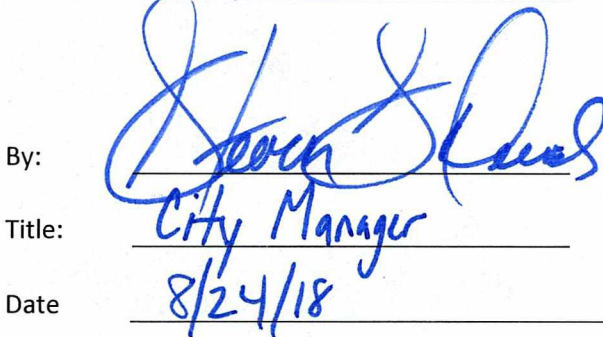 By: Steven
Title: City Manager
Date 8/24/18